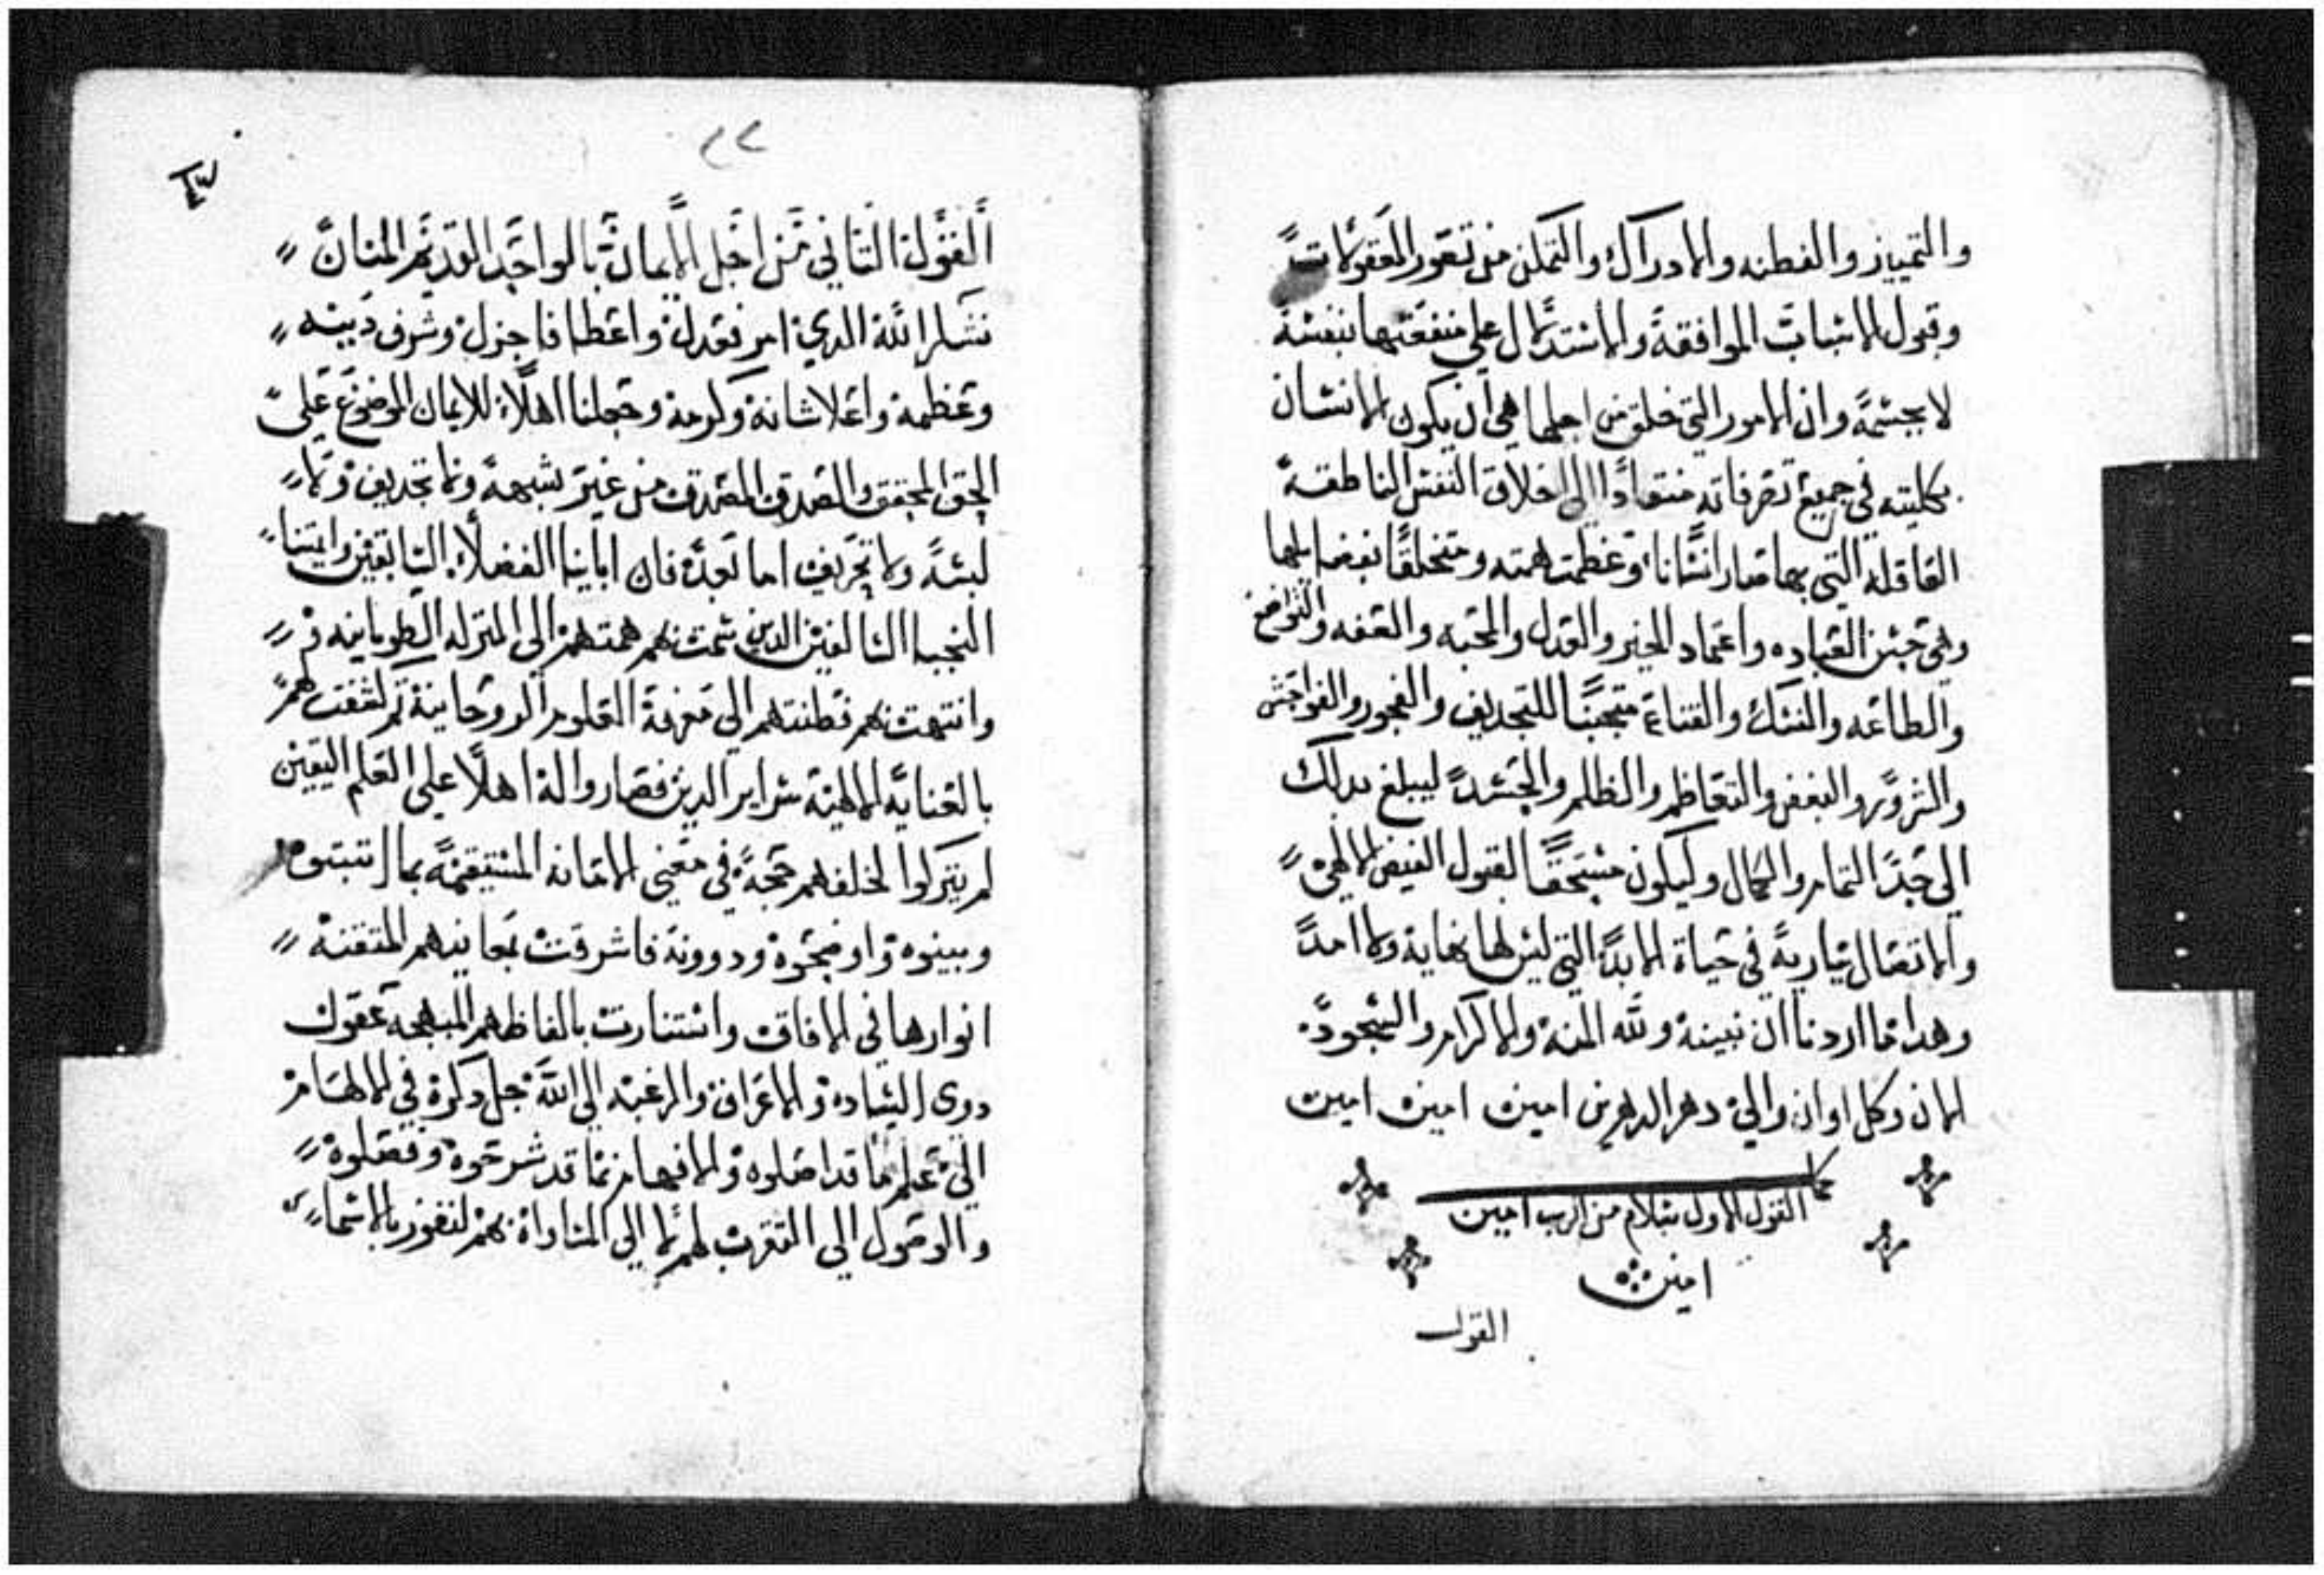 والتمييز والفطنه والادراك والتمكن من تصور المعقولات
وقبول الاشباب الموافقة والاستدلال علي منفعتها بنفسه
لا بجسمه وان الامور التي خلق من اجلها هي ان يكون الانسان
بكليته في جميع تصرفاته منقادا الي اخلاق النفس الناطقه
العاقله التي بها صار انسانا وعظمت همته ومتخلقا بفضايلها
وهي حسن العباده واعتماد الخير والعدل والمحبه والعفه والتواضع
والطاعه والنسك والقناعة متجنبا للتجديف والفجور والفواحش
والشرور والبغض والتعاظم والظلم والحسد ليبلغ بدلك
الي حد التمام والكمال وليكون مستحقا لقبول الفيض الالهي
والاتصال بباريه في حياة الابد التي ليس لها نهاية ولا امد
وهدا ما اردنا ان نبينة ولله المنه والاكرام والسجود
الان وكل اوان والي دهر الداهرين امين امين امين
كمل
القول الاول بسلام من الرب امين
امين
القول
٢٢
القول الثاني من اجل الايمان بالواحد القديم المنان
نشكر الله الدي امر فعدل واعطا فاجزل وشرف دينه
وعظمة واعلا شانة وكرمة وجعلنا اهلا للايمان الموضوع علي
الحق المحقق والصدق المصدق من غير شبهه ولا تجديف ولا
لبسه ولا تحريف اما بعد فان ابايا الفضلا السابقين وايمتنا
النجبا السالفين الدين سمت بهم همتهم الي المنزله الطوبانيه
وانتهت بهم فطنتهم الي معرفة العلوم الروحانية ثم لشفت لهم
بالعنايه الالهيه سراير الدين فصاروا لة اهلا علي العلم اليقين
لم يتركوا لخلفهم حجة في معني الامانه المستيقمه بما اتبتوه
وبينوه واوضحوه ودوونة فاشرقت بمعانيهم المتقنه
انوارها في الافاق واستنارت بالفاظهم المبهجه عقول
دوي السياده والاعراق والرغبه الي الله جل دكره في الالهام
الي علم ما قد اصلوه والافهام بما قد شرحوه وفصلوه
والوصول الي التقرب لهم لا الي المساواة بهم لنفوز بالاسما